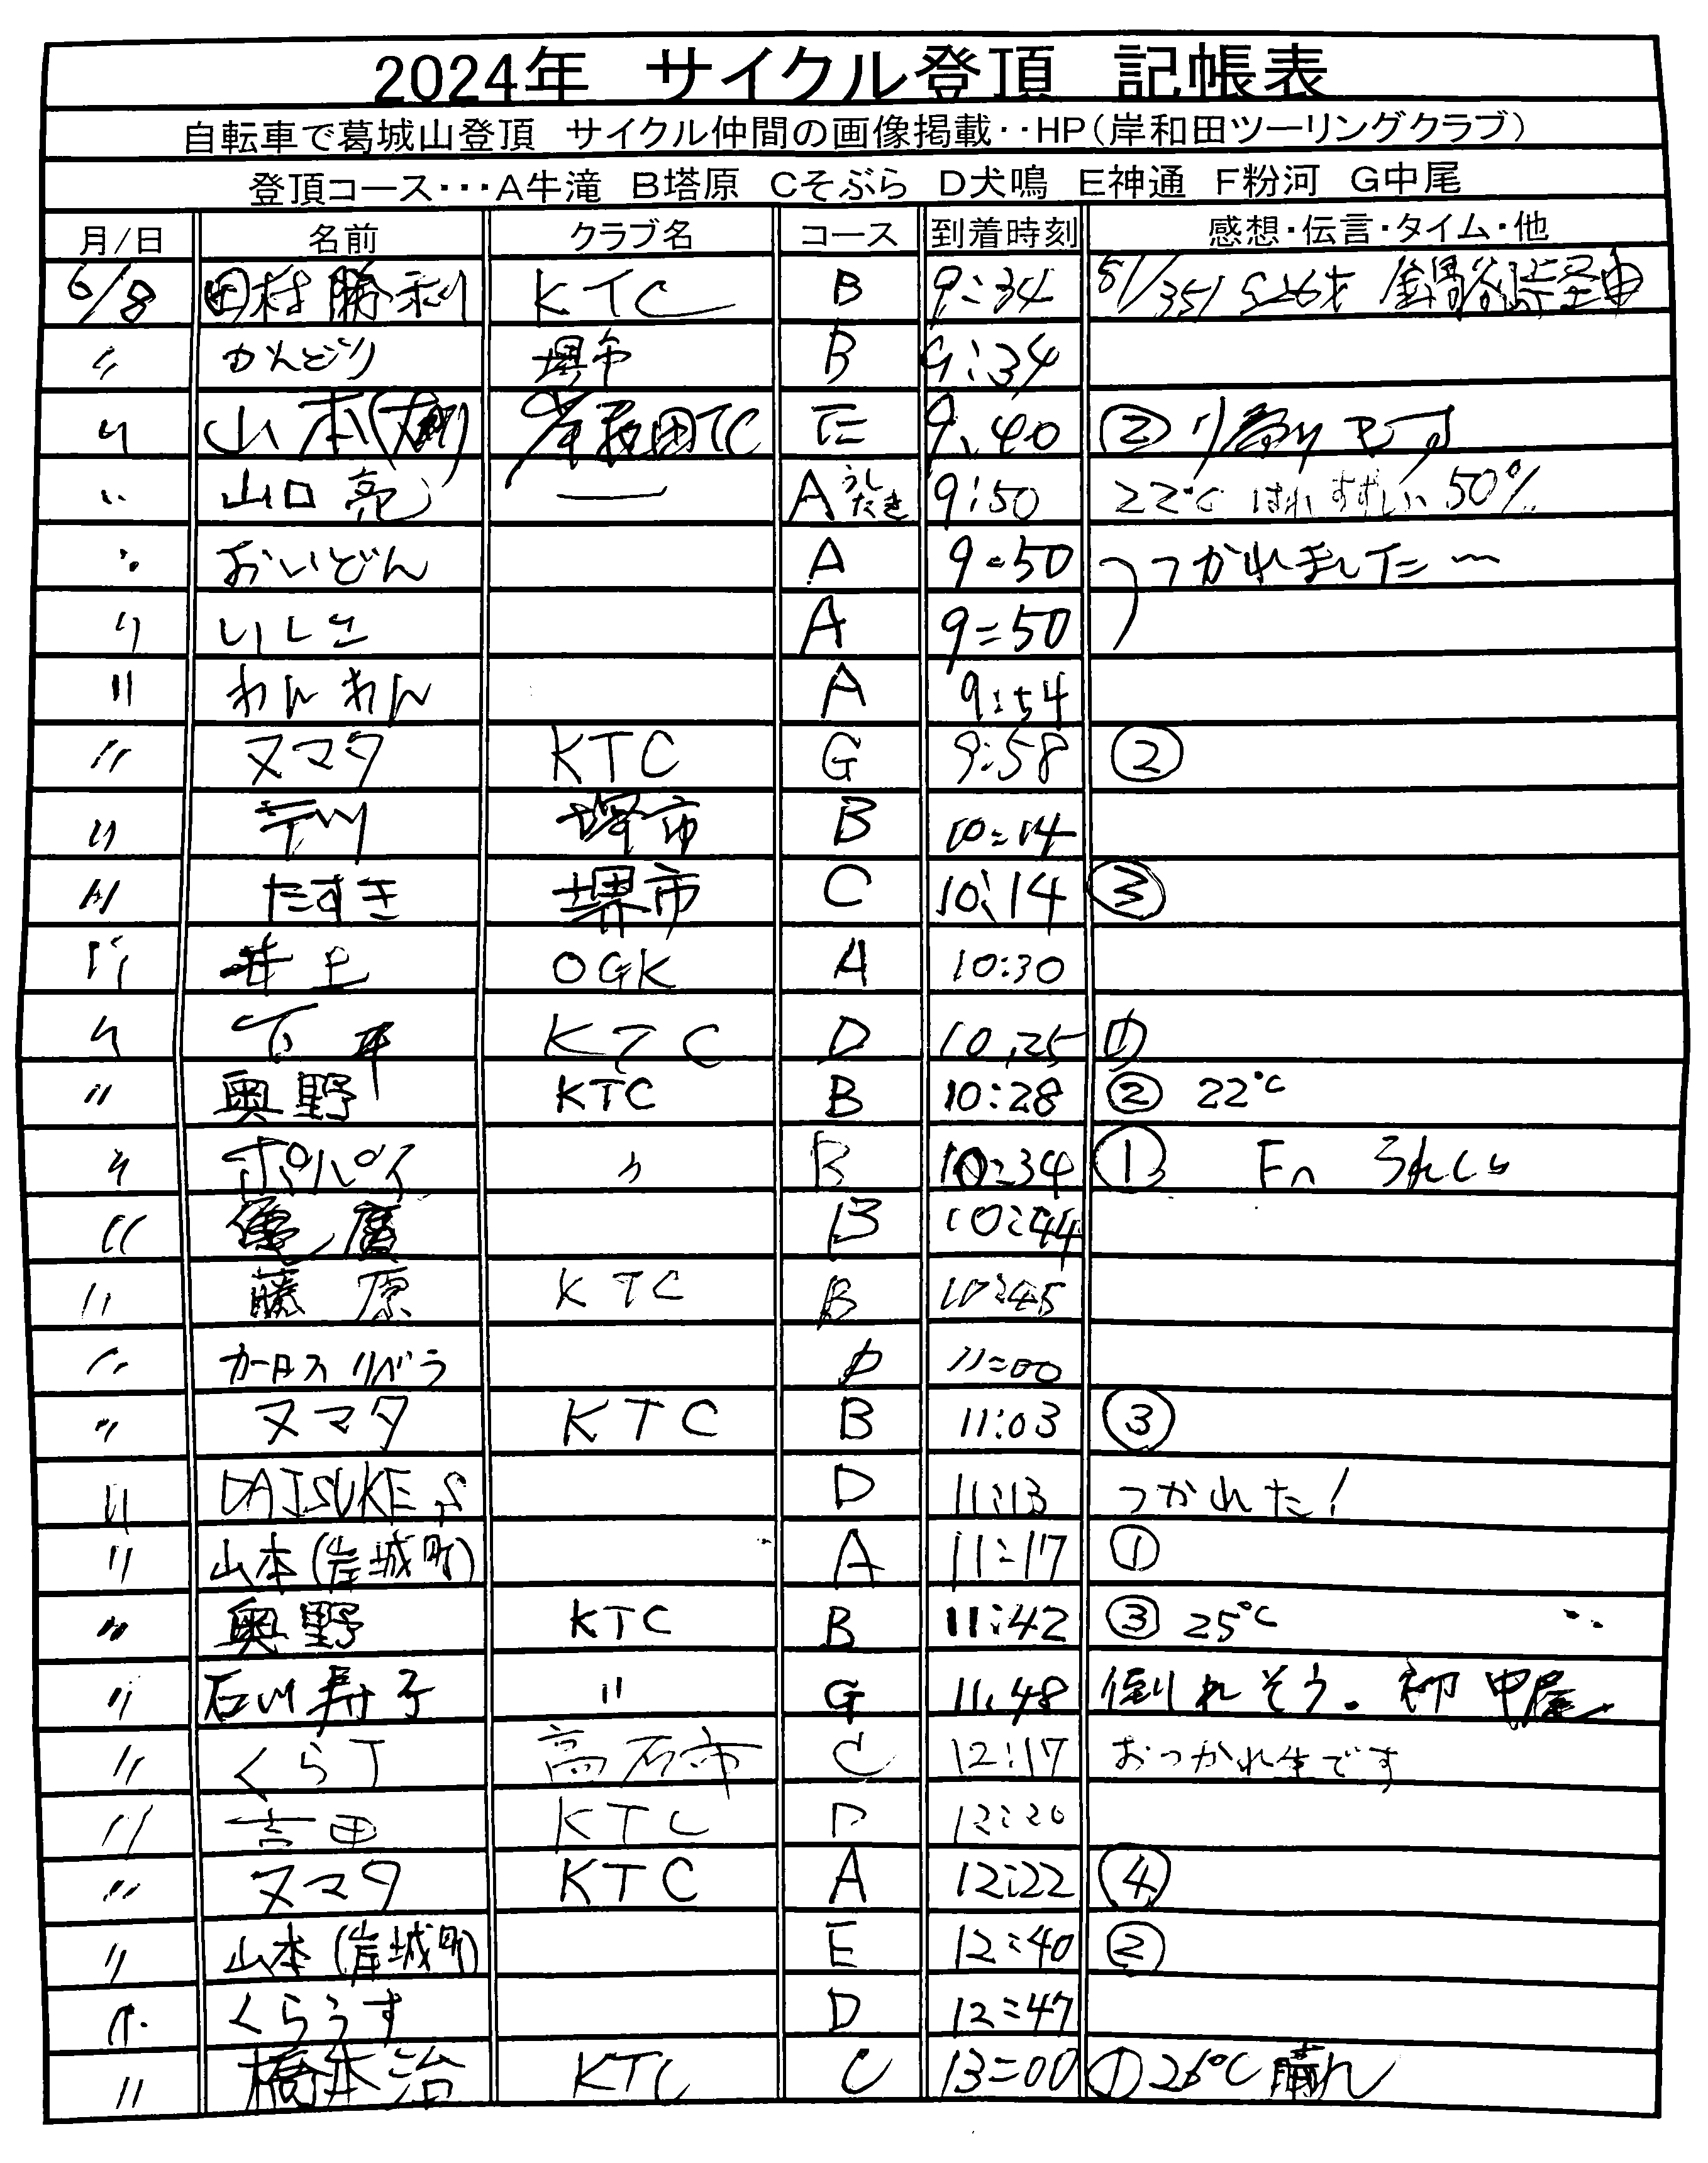 2024年 サイクル登頂 記帳表
自転車で葛城山登頂 サイクル仲間の画像掲載‥HP(岸和田ツーリングクラブ)
登頂コース･･･A牛滝 B塔原 Cそぶら D犬鳴 E神通 F粉河 G中尾
月/日 名前 クラブ名 コース 到着時刻 感想・伝言・タイム・他
6/8 田村勝利 KTC B 9:34 51/351 鍋谷峠経由
〃 かんどり 堺市 B 9:34
〃 山本 岸和田TC E 9:40 ② です
〃 山口亮 — A うしたき 9:50 22℃ はれ すずしい 50%
〃 おいどん A 9:50 つかれました〜
〃 いしこ A 9:50
〃 わんわん A 9:54
〃 ヌマタ KTC G 9:58 ②
〃 テツ 堺市 B 10:14
〃 たすき 堺市 C 10:14 ③
〃 井上 OGK A 10:30
〃 下井 KTC D 10:25 ①
〃 奥野 KTC B 10:28 ② 22℃
〃 ポパイ 〃 B 10:34 ① うれしい
〃 亀廣 B 10:44
〃 藤原 KTC B 10:45
〃 カーロスリベラ D 11:00
〃 ヌマタ KTC B 11:03 ③
〃 DAISUKE.S D 11:13 つかれた!
〃 山本(岸城町) A 11:17 ①
〃 奥野 KTC B 11:42 ③ 25℃
〃 石川寿子 〃 G 11:48 倒れそう。初中尾
〃 くらT 高石市 C 12:17 おつかれ生です
〃 吉田 KTC D 12:20
〃 ヌマタ KTC A 12:22 ④
〃 山本(岸城町) E 12:40 ②
〃 くらうす D 12:47
〃 橋本治 KTC C 13:00 ① 26℃ 晴れ